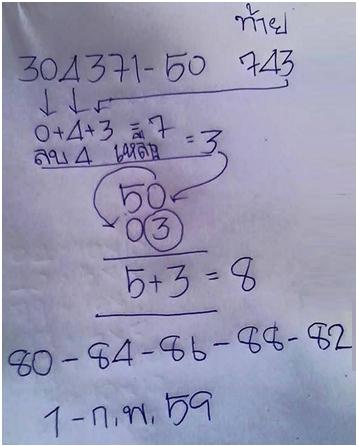 ท้าย
304371-50 743
0+4+3 = 7
ลบ 4 เหลือ = 3
50
03
5+3 = 8
80-84-86-88-82
1-ก.พ. 59